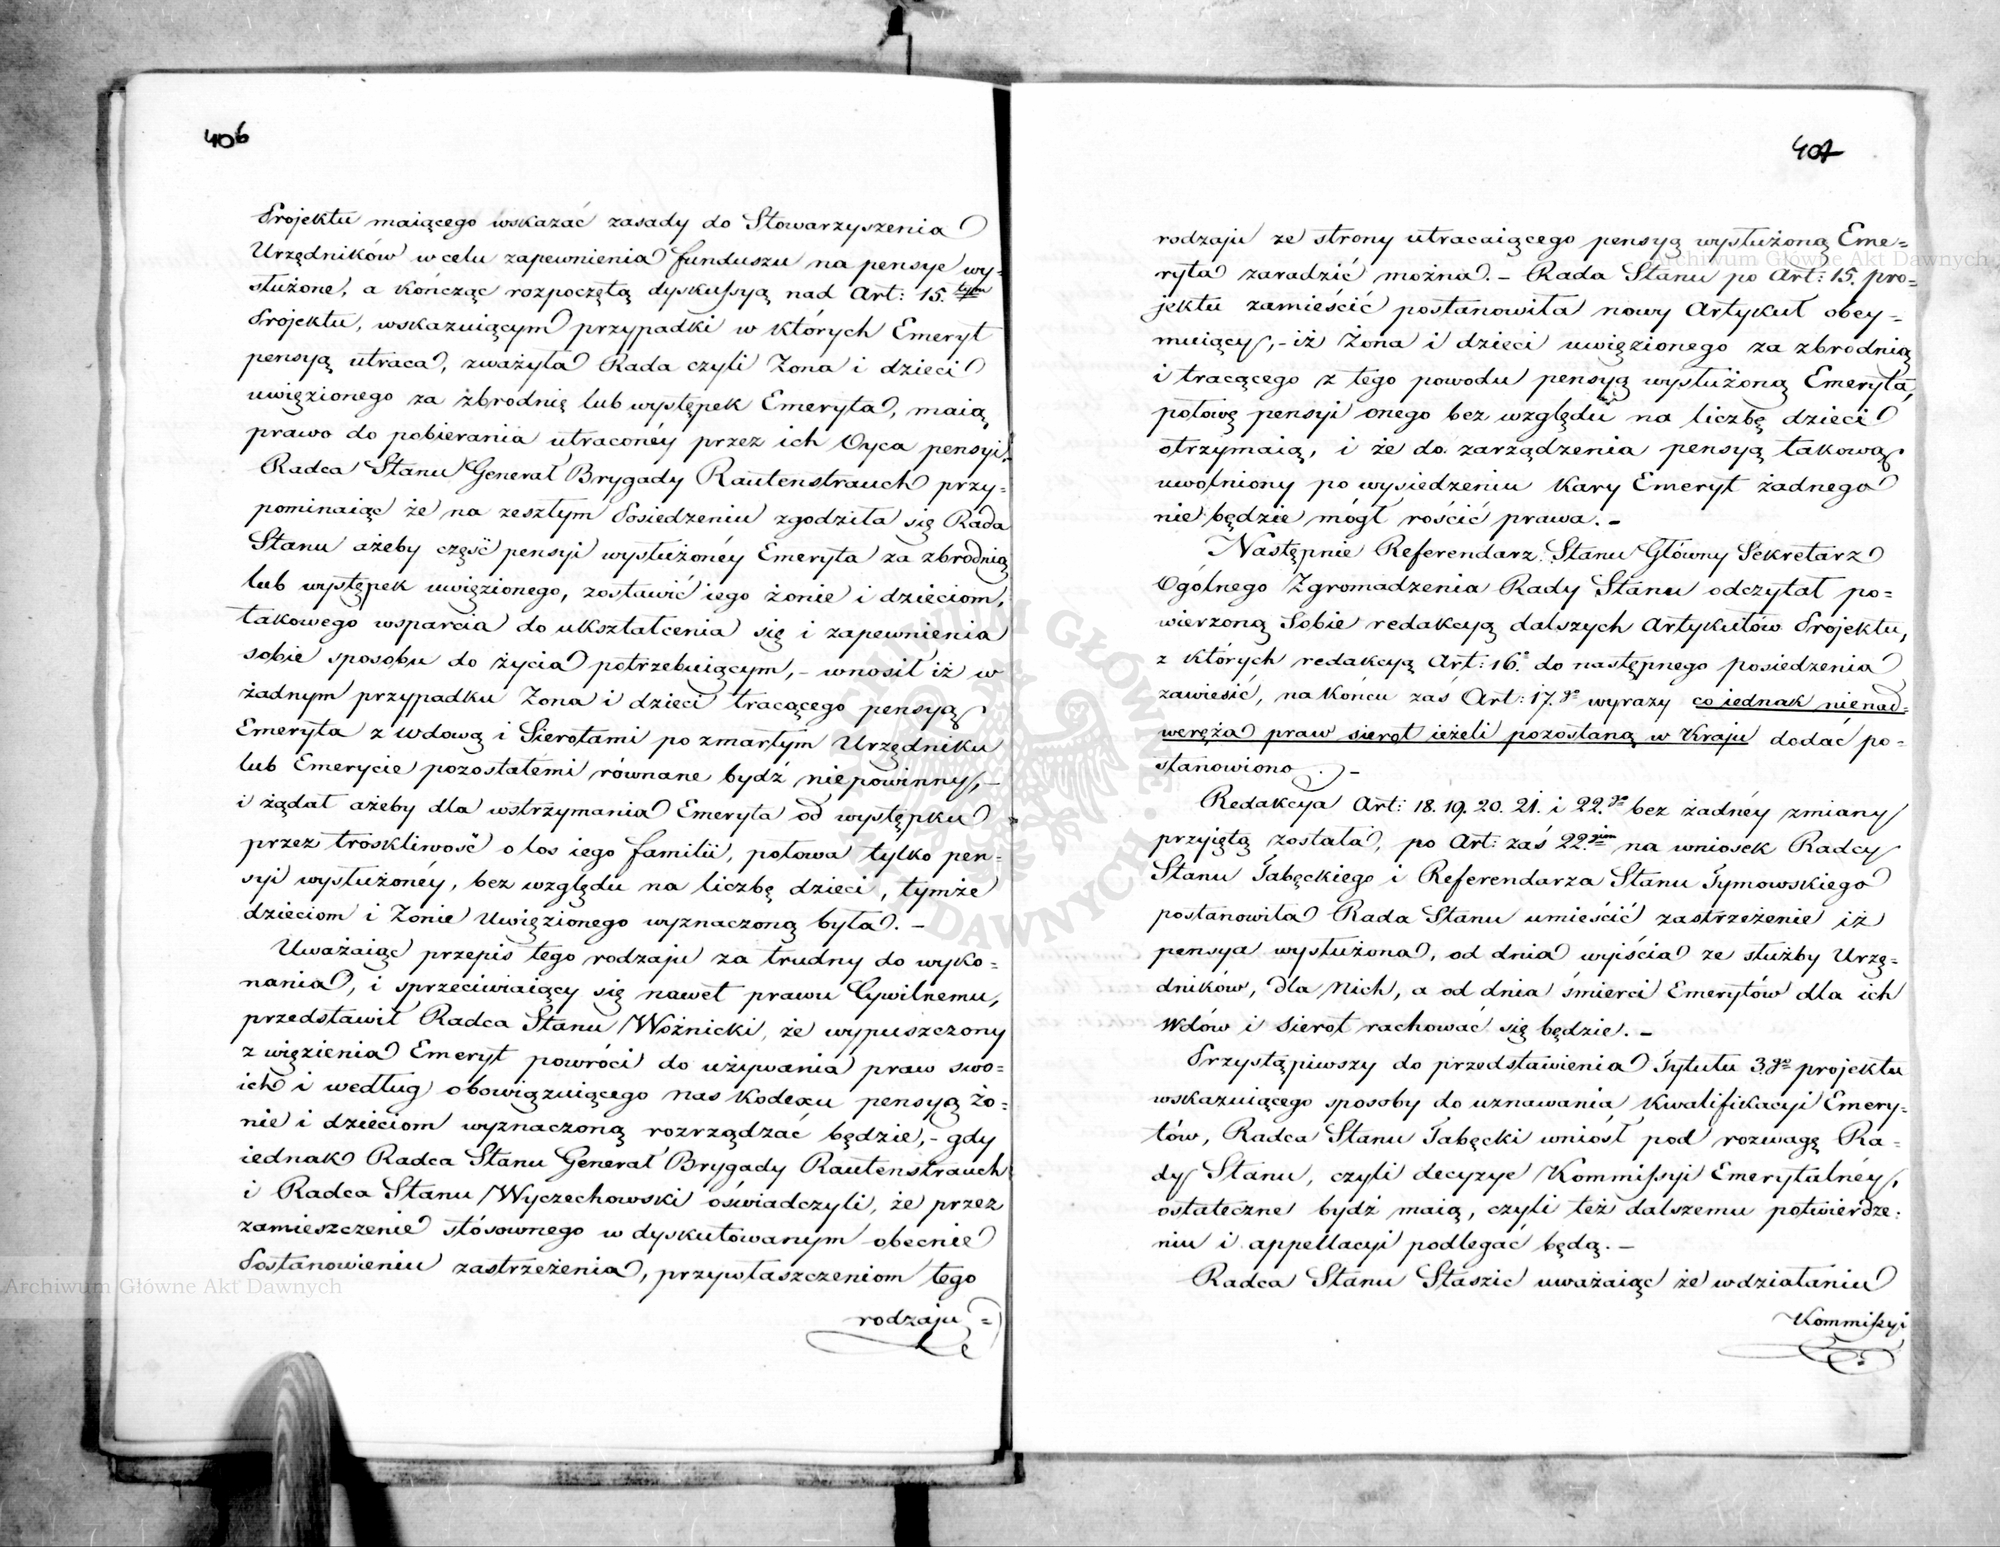 406
Projektu maiącego wskazać zasady do Stowarzyszenia
Urzędników w celu zapewnienia funduszu na pensye wy-
służone, a kończąc rozpoczętą dyskussyą nad Art: 15.tym
Projektu, wskazuiącym przypadki w których Emeryt
pensyą utraca, zważyła Rada czyli Żona i dzieci
uwięzionego za zbrodnię lub występek Emeryta, maią
prawo do pobierania utraconéy przez ich Oyca pensyi.
Radca Stanu Generał Brygady Rautenstrauch przy-
pominaiąc że na zeszłym Posiedzeniu zgodziła się Rada
Stanu ażeby część pensyi wysłużonéy Emeryta za zbrodnią
lub występek uwięzionego, zostawić iego żonie i dzieciom,
takowego wsparcia do ukształcenia się i zapewnienia
sobie sposobu do życia potrzebuiącym, - wnosił iż w
żadnym przypadku Żona i dzieci tracącego pensyą
Emeryta z wdową i Sierotami po zmarłym Urzędniku
lub Emerycie pozostałemi równane bydź niepowinny, -
i żądał ażeby dla wstrzymania Emeryta od występku
przez troskliwość o los iego familii, połowa tylko pen-
syi wysłużonéy, bez względu na liczbę dzieci, tymże
dzieciom i Żonie Uwięzionego wyznaczoną była. -
Uważaiąc przepis tego rodzaju za trudny do wyko-
nania, i sprzeciwiaiący się nawet prawu Cywilnemu,
przedstawił Radca Stanu Woźnicki, że wypuszczony
z więzienia Emeryt powróci do używania praw swo-
ich i według obowiązuiącego nas Kodexu pensyą żo-
nie i dzieciom wyznaczoną rozrządzać będzie, - gdy
iednak Radca Stanu Generał Brygady Rautenstrauch
i Radca Stanu Wyczechowski oświadczyli, że przez
zamieszczenie stósownego w dyskutowanym obecnie
Postanowieniu zastrzeżenia, przywłaszczeniom tego
rodzaju =
407
rodzaju ze strony utracaiącego pensyą wysłużoną Eme-
ryta zaradzić można. - Rada Stanu po Art: 15. pro-
jektu zamieścić postanowiła nowy Artykuł obey-
muiący, - iż Żona i dzieci uwięzionego za zbrodnią
i tracącego z tego powodu pensyą wysłużoną Emeryta,
połowę pensyi onego bez względu na liczbę dzieci
otrzymaią, i że do zarządzenia pensyą takową
uwolniony po wysiedzeniu Kary Emeryt żadnego
nie będzie mógł rościć prawa. -
Następnie Referendarz Stanu Główny Sekretarz
Ogólnego Zgromadzenia Rady Stanu odczytał po-
wierzoną Sobie redakcyą dalszych Artykułów Projektu,
z których redakcyą Art: 16.o do następnego posiedzenia
zawiesić, na końcu zaś Art: 17.go wyrazy co iednak nienad-
weręża praw sierot ieżeli pozostaną w Kraju dodać po-
stanowiono. -
Redakcya Art: 18. 19. 20. 21. i 22.go bez żadnéy zmiany
przyiętą została, po Art: zaś 22.gim na wniosek Radcy
Stanu Tabęckiego i Referendarza Stanu Tymowskiego
postanowiła Rada Stanu umieścić zastrzeżenie iż
pensya wysłużona, od dnia wyiścia ze służby Urzę-
dników, dla Nich, a od dnia śmierci Emerytów dla ich
Wdów i Sierot rachować się będzie. -
Przystąpiwszy do przedstawienia Tytułu 3.go projektu
wskazuiącego sposoby do uznawania Kwalifikacyi Emery-
tów, Radca Stanu Tabęcki wniósł pod rozwagę Ra-
dy Stanu, czyli decyzye Kommissyi Emerytalnéy,
ostateczne bydź maią, czyli też dalszemu potwierdze-
niu i appellacyi podlegać będą. -
Radca Stanu Staszic uważaiąc że w działaniu
Kommissyi
Archiwum Główne Akt Dawnych
Archiwum Główne Akt Dawnych
ARCHIWUM GŁÓWNE AKT DAWNYCH